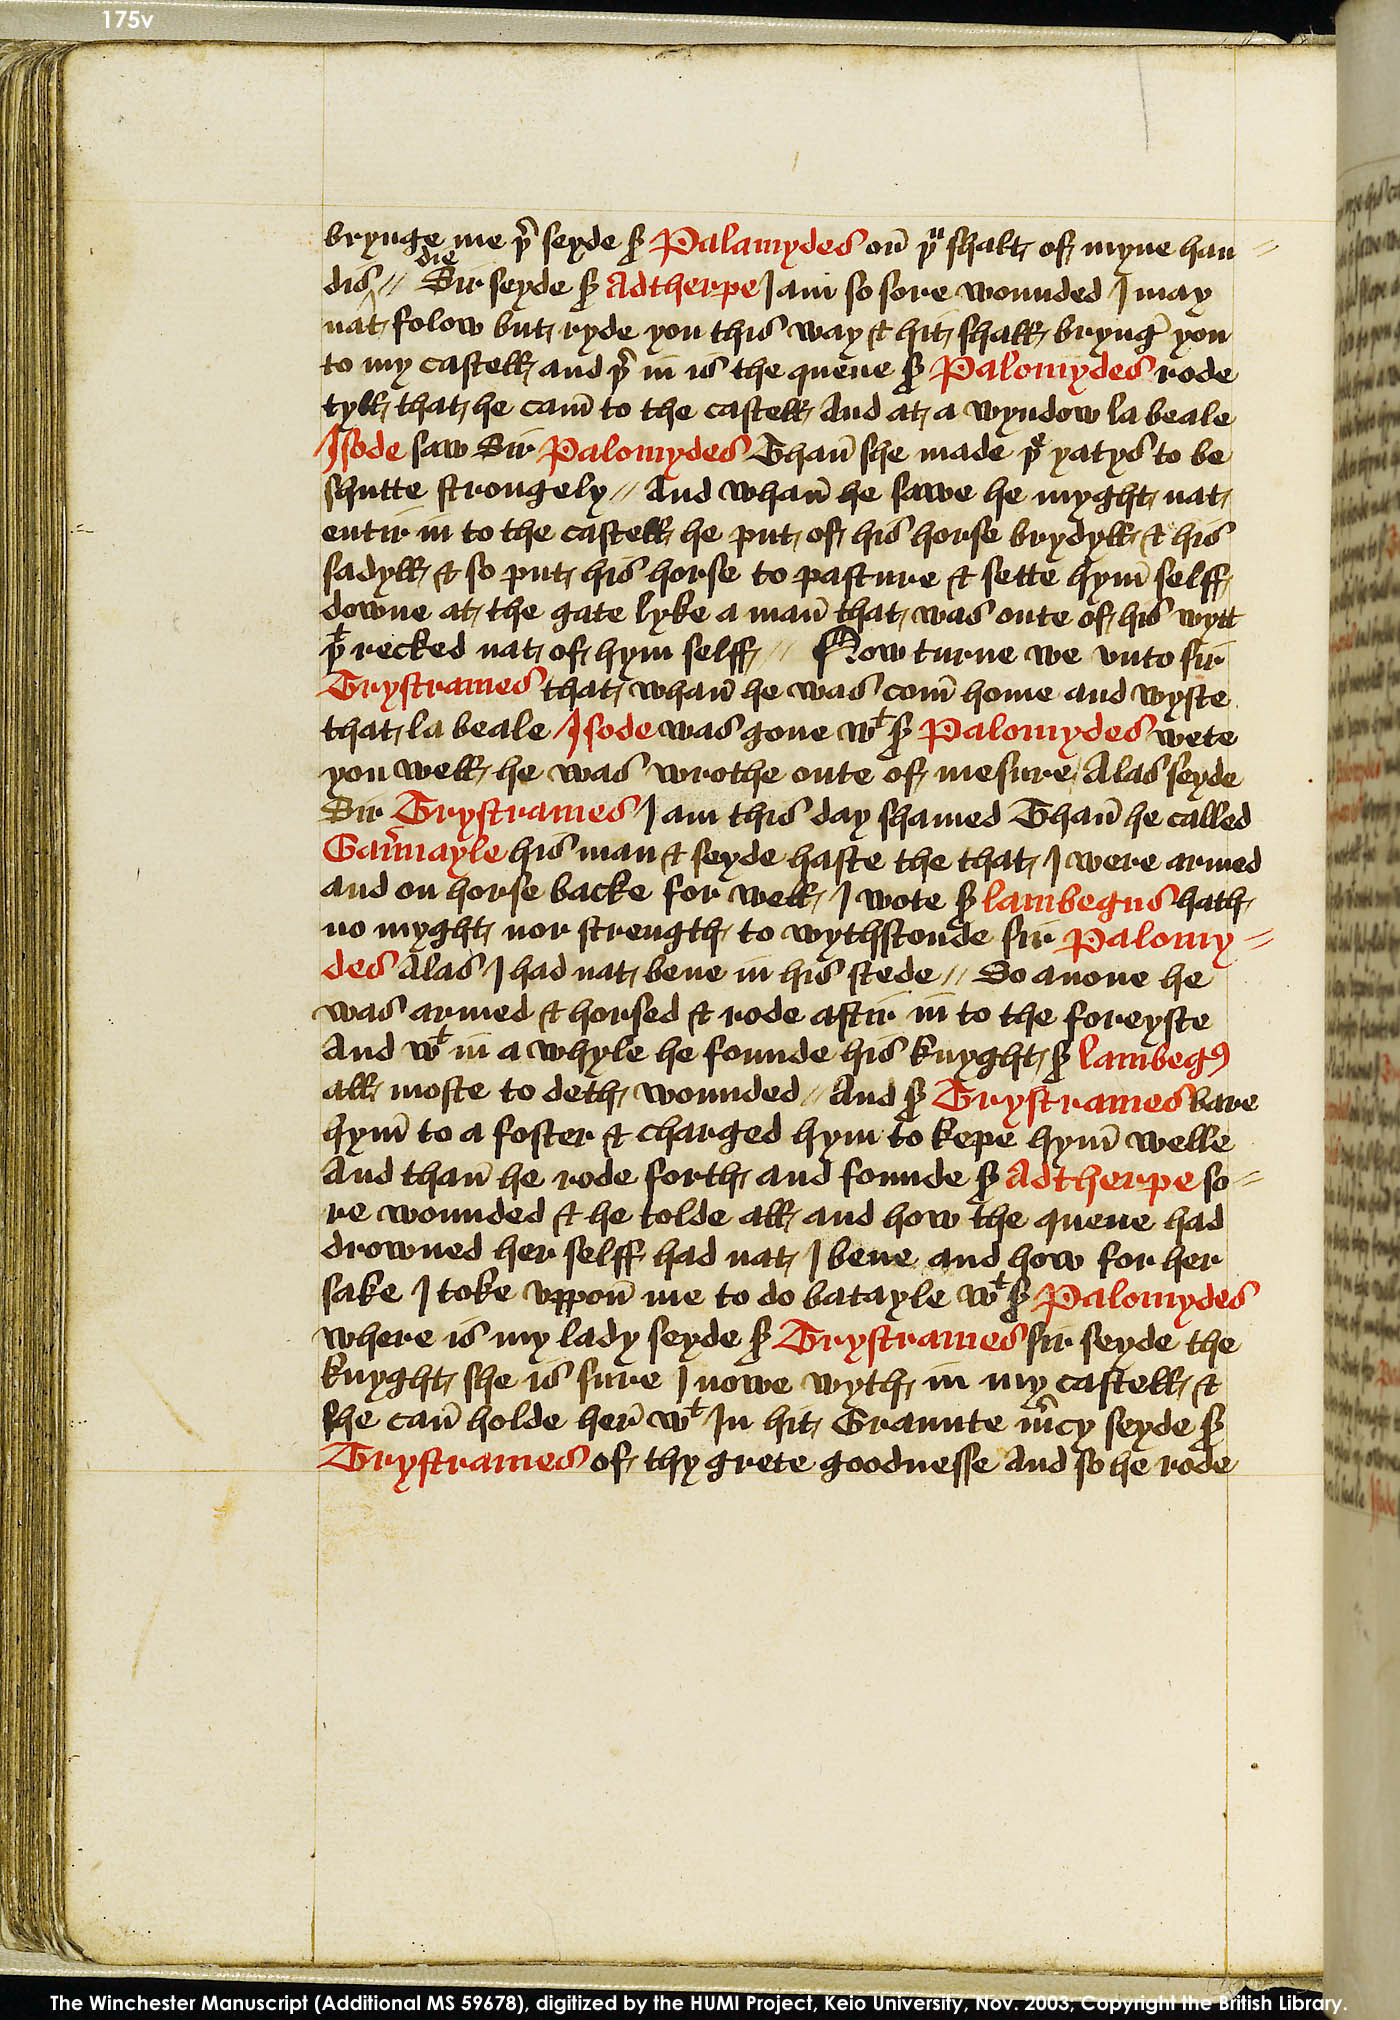 175v
brynge me þr̄ seyde sꝛ̄ Palamydes or̄ þu shalt of myne han⸗
dis // die Sir seyde sꝛ̄ Adtherpe I am so sore wounded I may
nat folow but ryde you this way & hit shall brynḡ you
to my castell and þr̄ in is the quene sꝛ̄ Palomydes rode
tyll that he cam̄ to the castell And at a wyndow la beale
Isode saw Sir Palomydes Than̄ she made þe yatys to be
shutte strongely // And whan̄ he sawe he myght nat
entir in to the castell he put of his horse brydyll & his
sadyll & so put his horse to pasture & sette hym̄ selff
downe at the gate lyke a man̄ that was oute of his wytt
þt recked nat of hym selff // Now turne we vnto sir
Trystrames that whan̄ he was com̄ home and wyste
that la beale Isode was gone wt sꝛ̄ Palomydes wete
you well he was wrothe oute of mesure Alas seyde
Sir Trystrames I am this day shamed Than̄ he called
Gar̄nayle his man & seyde haste the that I were armed
and on horse backe for well I wote sꝛ̄ lambegus hath
no myght nor strength to wythstonde sir Palomy⸗
des Alas I had nat bene in his stede // So anone he
was armed & horsed & rode aftir in to the foreyste
And wt in a whyle he founde his knyght sꝛ̄ lambegꝰ
all moste to deth wounded // And sꝛ̄ Trystrames bare
hym̄ to a foster & charged hym to kepe hym̄ welle
And than̄ he rode forth and founde sꝛ̄ Adtherpe so⸗
re wounded & he tolde all and how the quene had
drowned her selff had nat I bene and how for her
sake I toke vppon̄ me to do batayle wt sꝛ̄ Palomydes
where is my lady seyde sꝛ̄ Trystrames sir seyde the
knyght she is sure I nowe wyth in my castell &
she can̄ holde her̄ wt In hit Graunte m̄cy seyde sꝛ̄
Trystrames of thy grete goodnesse And so he rode
The Winchester Manuscript (Additional MS 59678), digitized by the HUMI Project, Keio University, Nov. 2003, Copyright the British Library.